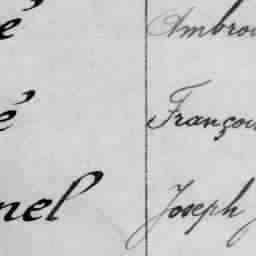 é Ambroi
é Françoi
nel Joseph J